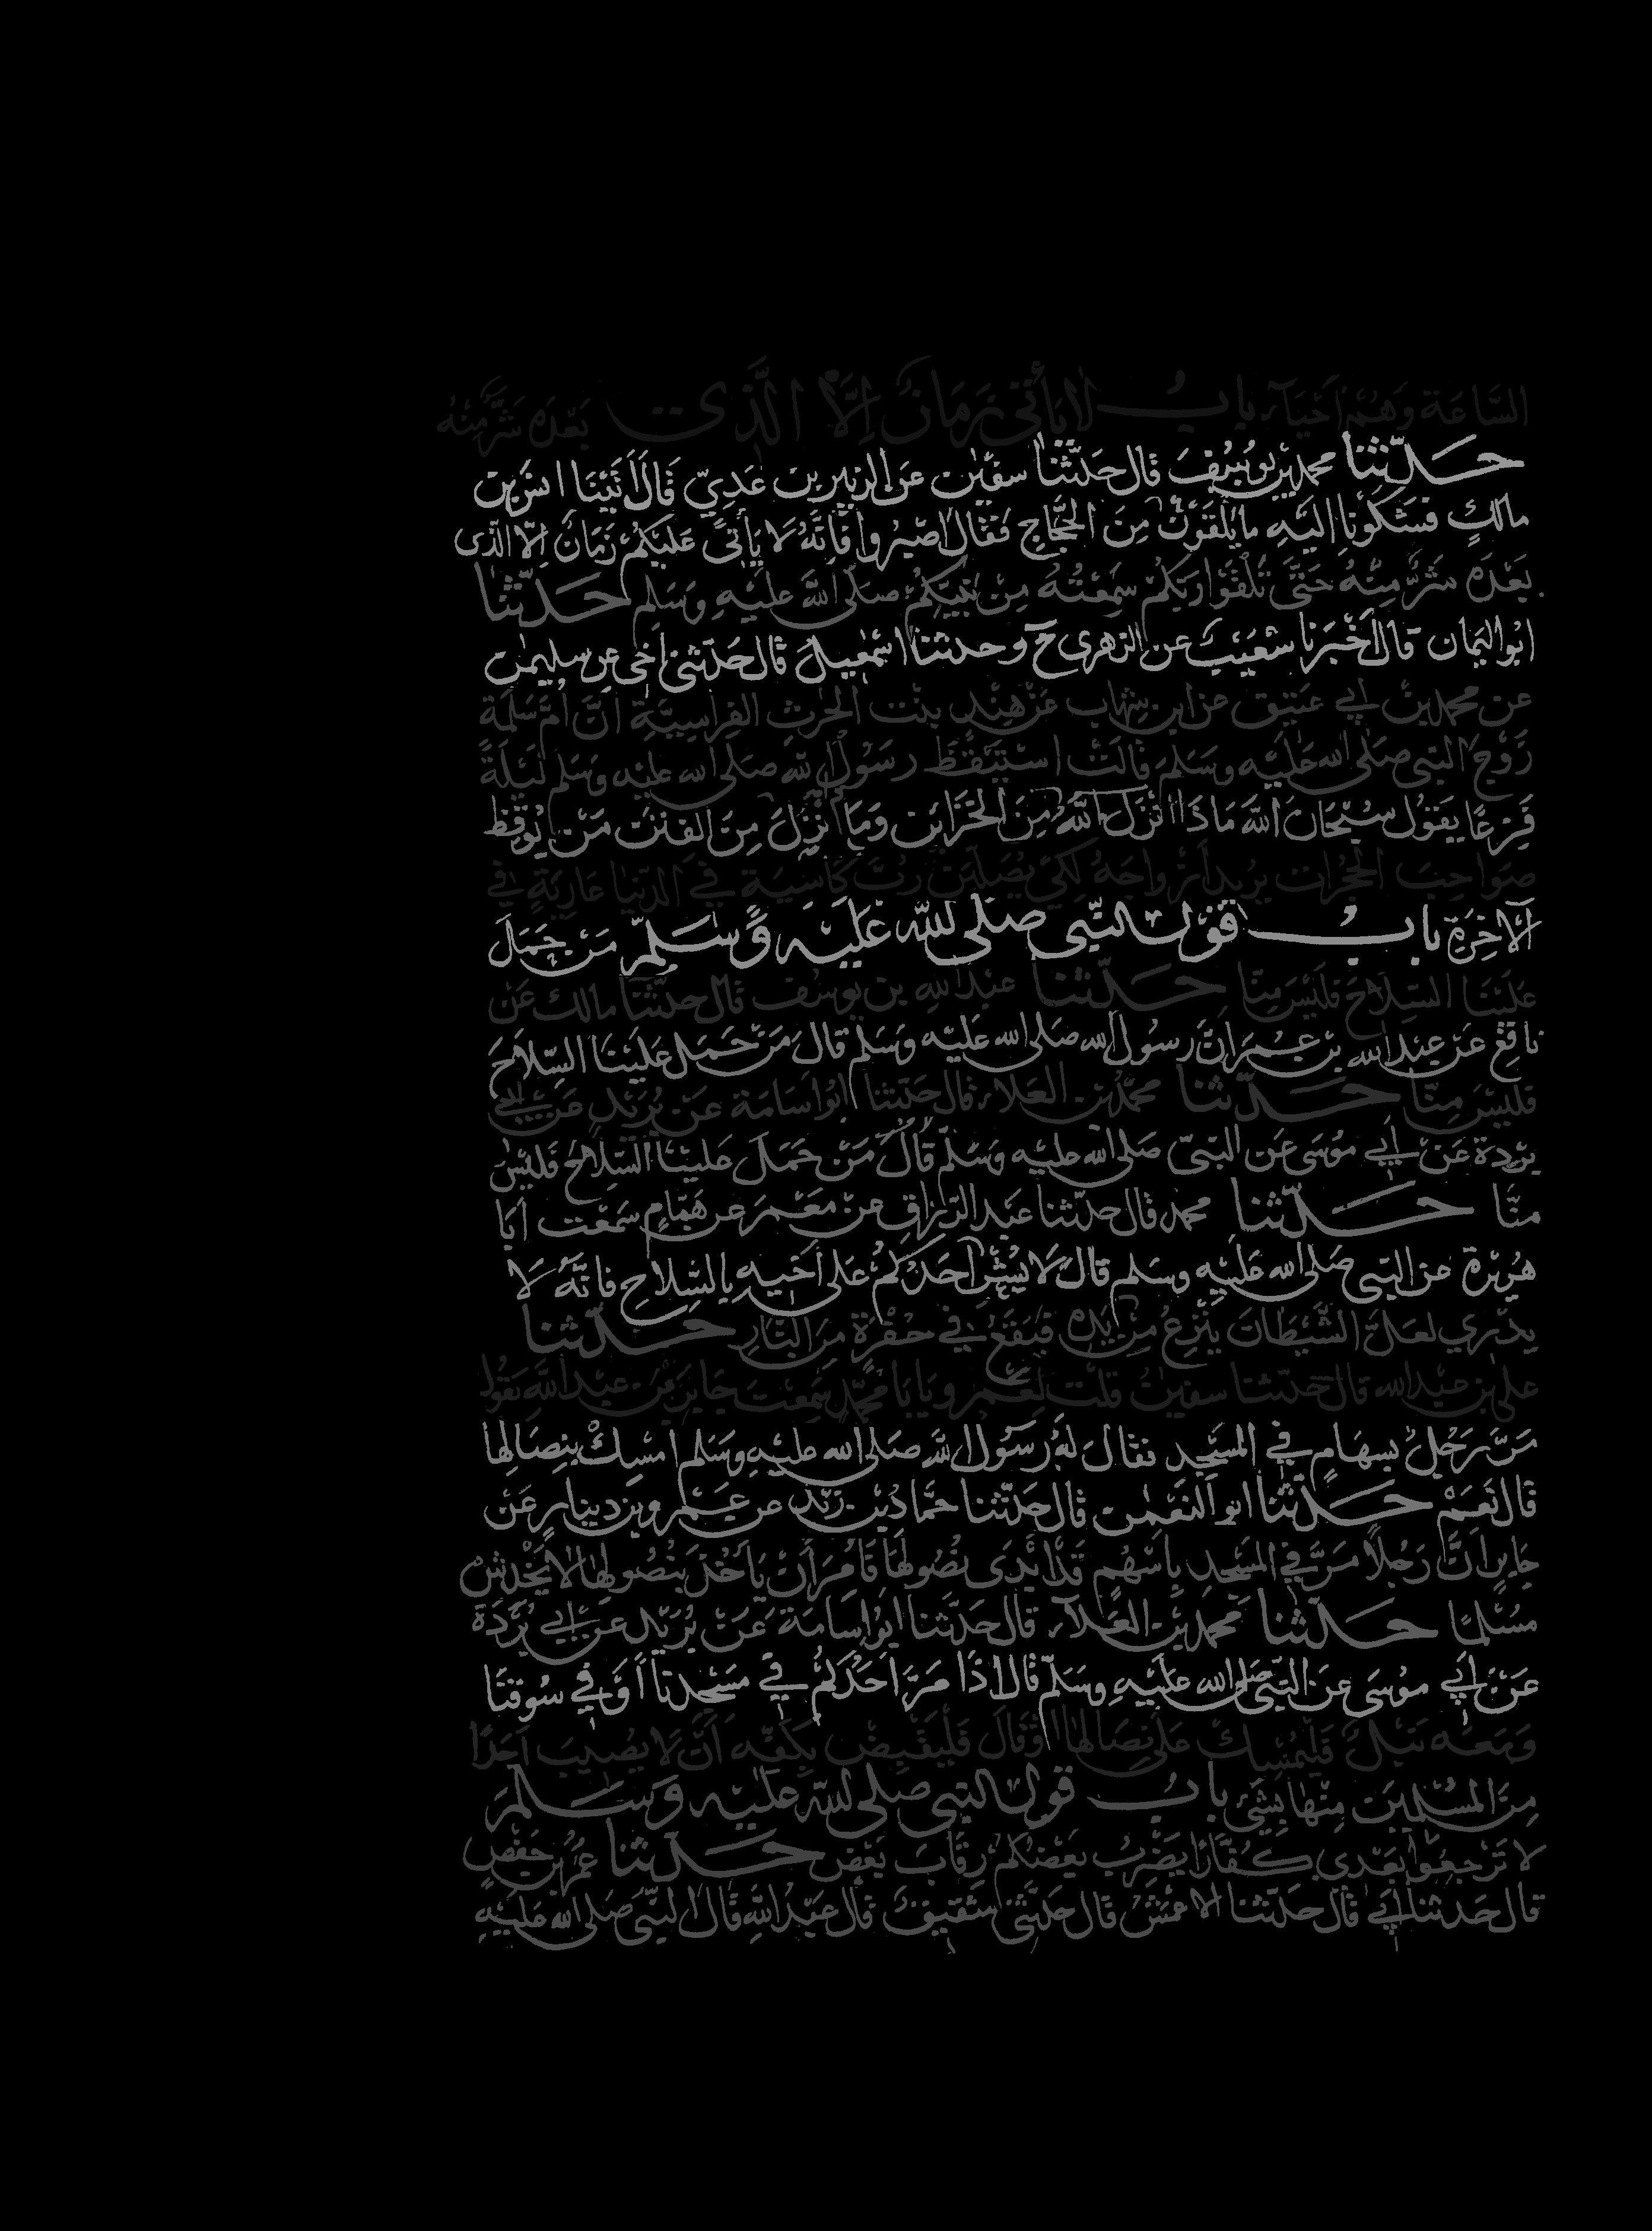 الساعة وهم احياء باب لا ياتى زمان الا الذى بعده شر منه
حدثنا محمد بن يوسف قال حدثنا سفين عن الزبير بن عدي قال اتينا انس بن
مالك فشكونا اليه ما يلقون من الحجاج فقال اصبروا فانه لا ياتى عليكم زمان الا الذى
بعده شر منه حتى تلقوا ربكم سمعته من نبيكم صلى الله عليه وسلم حدثنا
ابو اليمان قال اخبرنا شعيب عن الزهرى ح وحدثنا اسمعيل قال حدثنى اخى عن سليمن
عن محمد بن ابي عتيق عن ابن شهاب عن هند بنت الحرث الفراسية ان ام سلمة
زوج النبى صلى الله عليه وسلم قالت استيقظ رسول الله صلى الله عليه وسلم ليلة
فزعا يقول سبحان الله ماذا انزل الله من الخزائن وما انزل من الفتن من يوقظ
صواحب الحجرات يريد ازواجه لكي يصلين رب كاسية في الدنيا عارية في
الاخرة باب قول النبى صلى الله عليه وسلم من حمل
علينا السلاح فليس منا حدثنا عبد الله بن يوسف قال حدثنا مالك عن
نافع عن عبد الله بن عمر ان رسول الله صلى الله عليه وسلم قال من حمل علينا السلاح
فليس منا حدثنا محمد بن العلاء قال حدثنا ابو اسامة عن بريد عن ابي
بردة عن ابي موسى عن النبى صلى الله عليه وسلم قال من حمل علينا السلاح فليس
منا حدثنا محمد قال حدثنا عبد الرزاق عن معمر عن همام سمعت ابا
هريرة عن النبى صلى الله عليه وسلم قال لا يشير احدكم على اخيه بالسلاح فانه لا
يدري لعل الشيطان ينزع من يده فيقع في حفرة من النار حدثنا
على بن عبد الله قال حدثنا سفين قلت لعمرو يا با محمد سمعت جابر بن عبد الله يقول
مر رجل بسهام في المسجد فقال له رسول الله صلى الله عليه وسلم امسك بنصالها
قال نعم حدثنا ابو النعمن قال حدثنا حماد بن زيد عن عمرو بن دينار عن
جابر ان رجلا مر في المسجد باسهم قد ابدى نصولها فامر ان ياخذ بنصولها لا يخدش
مسلما حدثنا محمد بن العلاء قال حدثنا ابو اسامة عن بريد عن ابي بردة
عن ابي موسى عن النبى صلى الله عليه وسلم قال اذا مر احدكم في مسجدنا او في سوقنا
ومعه نبل فليمسك على نصالها او قال فليقبض بكفه ان لا يصيب احدا
من المسلمين منها بشئ باب قول النبى صلى الله عليه وسلم
لا ترجعوا بعدى كفارا يضرب بعضكم رقاب بعض حدثنا عمر بن حفص
قال حدثنا ابي قال حدثنا الاعمش قال حدثنى شقيق قال عبد الله قال النبى صلى الله عليه